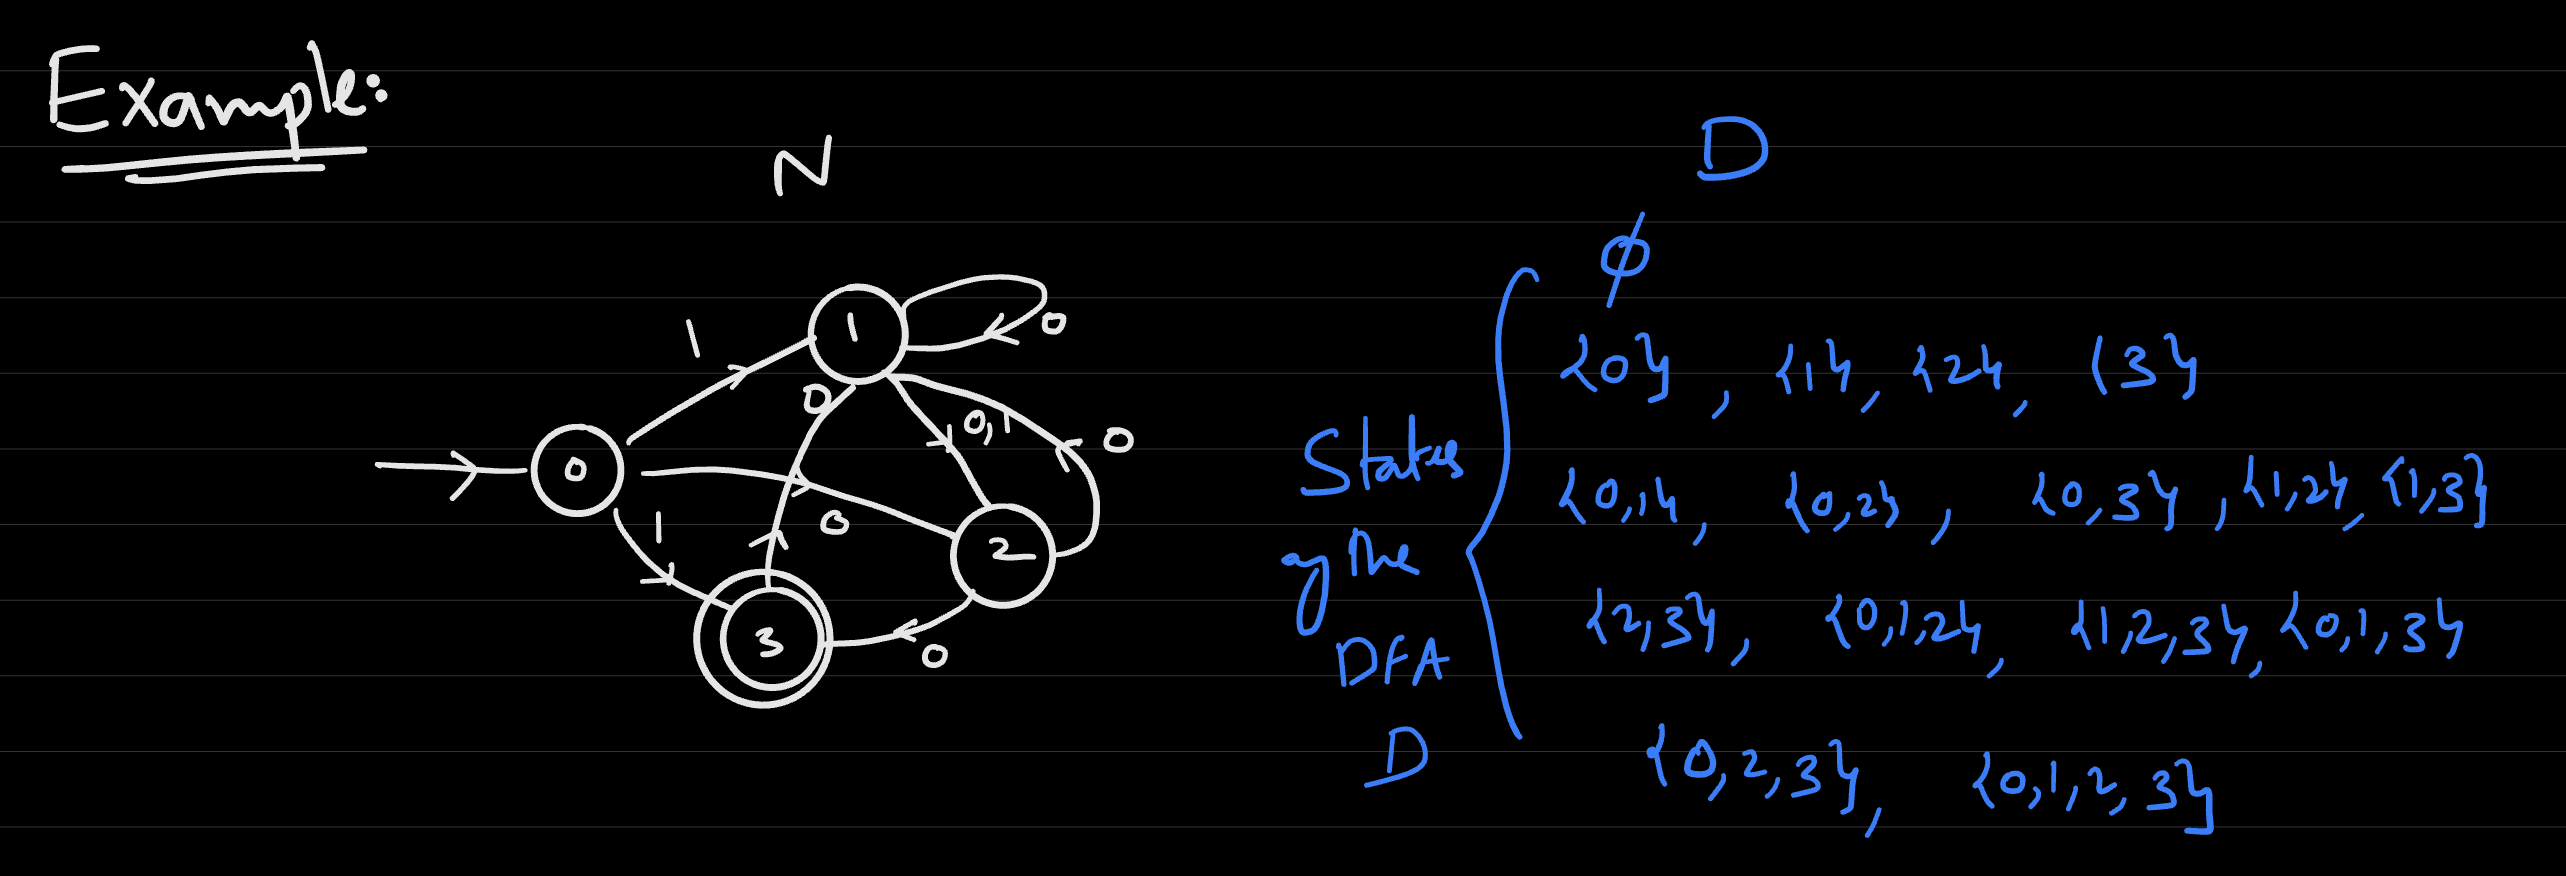 Example:
N
D
1
1
0
0
0,1
0
0
1
0
2
3
0
States of the DFA D
φ
{0}, {1}, {2}, {3}
{0,1}, {0,2}, {0,3}, {1,2}, {1,3}
{2,3}, {0,1,2}, {1,2,3}, {0,1,3}
{0,2,3}, {0,1,2,3}